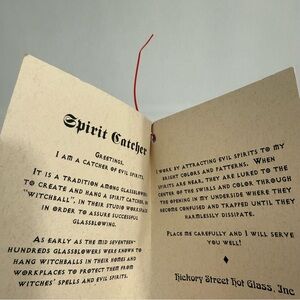 Spirit Catcher
Greetings.
I am a catcher of evil spirits.
It is a tradition among glassblowers
to create and hang a spirit catcher, or
"witchball", in their studio workspace
in order to assure successful
glassblowing.
As early as the mid seventeen-
hundreds glassblowers were known to
hang witchballs in their homes and
workplaces to protect them from
witches' spells and evil spirits.
I work by attracting evil spirits to my
bright colors and patterns. When
spirits are near, they are lured to the
center of the swirls and color through
the opening in my underside where they
become confused and trapped until they
harmlessly dissipate.
Place me carefully and I will serve
you well!
Hickory Street Hot Glass, Inc